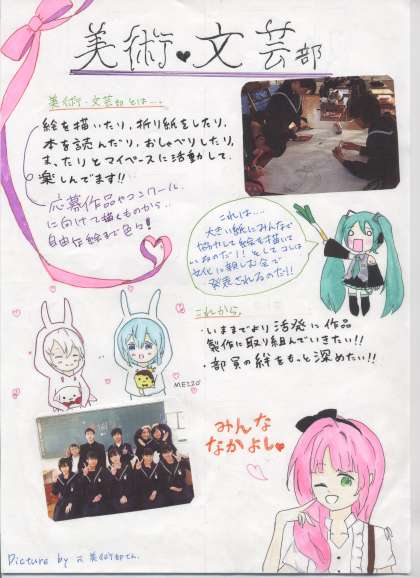 美術♥文芸部
美術・文芸部とは…。
絵を描いたり、折り紙をしたり、
本を読んだり、おしゃべりしたり、
まったりとマイペースに活動して、
楽しんでます!!
応募作品やコンクール
に向けて描くものから
自由な絵まで色々!
これは…
大きい紙にみんなで
協力して絵を描いて
いるのだ!! そしてコレは
文化に親しむ会で
発表されるのだ!!
MEZZO
これから、
・いままでより活発に作品
製作に取り組んでいきたい!!
・部員の絆をもっと深めたい!!
みんな
なかよし♥
Picture by
美術部